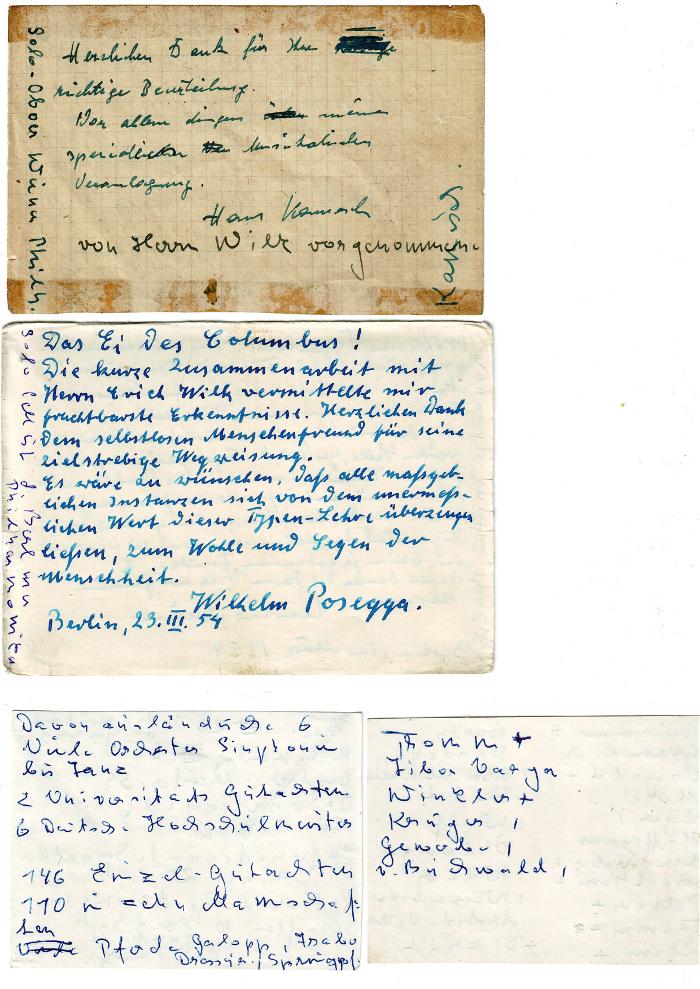 Herzlichen Dank für Ihre
richtige Beurteilung.
Vor allem dingen meine
speziellen Musikalischen
Veranlagung.
Hans Kamesch
von Herrn Wilk vorgenommen.
Solo-Oboer Wiener Philh.
Das Ei des Columbus!
Die kurze Zusammenarbeit mit
Herrn Erich Wilk vermittelte mir
fruchtbarste Erkenntnisse. Herzlichen Dank
dem selbstlosen Menschenfreund für seine
zielstrebige Wegweisung.
Es wäre zu wünschen, daß alle maßgeb-
lichen Instanzen sich von dem unermeß-
lichen Wert dieser Typen-Lehre überzeugen
ließen, zum Wohle und Segen der
Menschheit.
Wilhelm Posegga.
Berlin, 23.III.54
Solo Cellist d. Berliner
Philharmoniker
Davon ausländische 6
Viele Orchester Simphonie
bis Tanz
2 Universitäts Gutachten
6 Deutsche Hochschulmeister
146 Einzel-Gutachten
110 in zehn Mannschaf-
ten
Pferde Galopp, Trabo
Dressur, Springpf.
Thomm +
Tibor Varga
Winkler +
Krüger 1
Gewobe 1
v. Buchwald 1